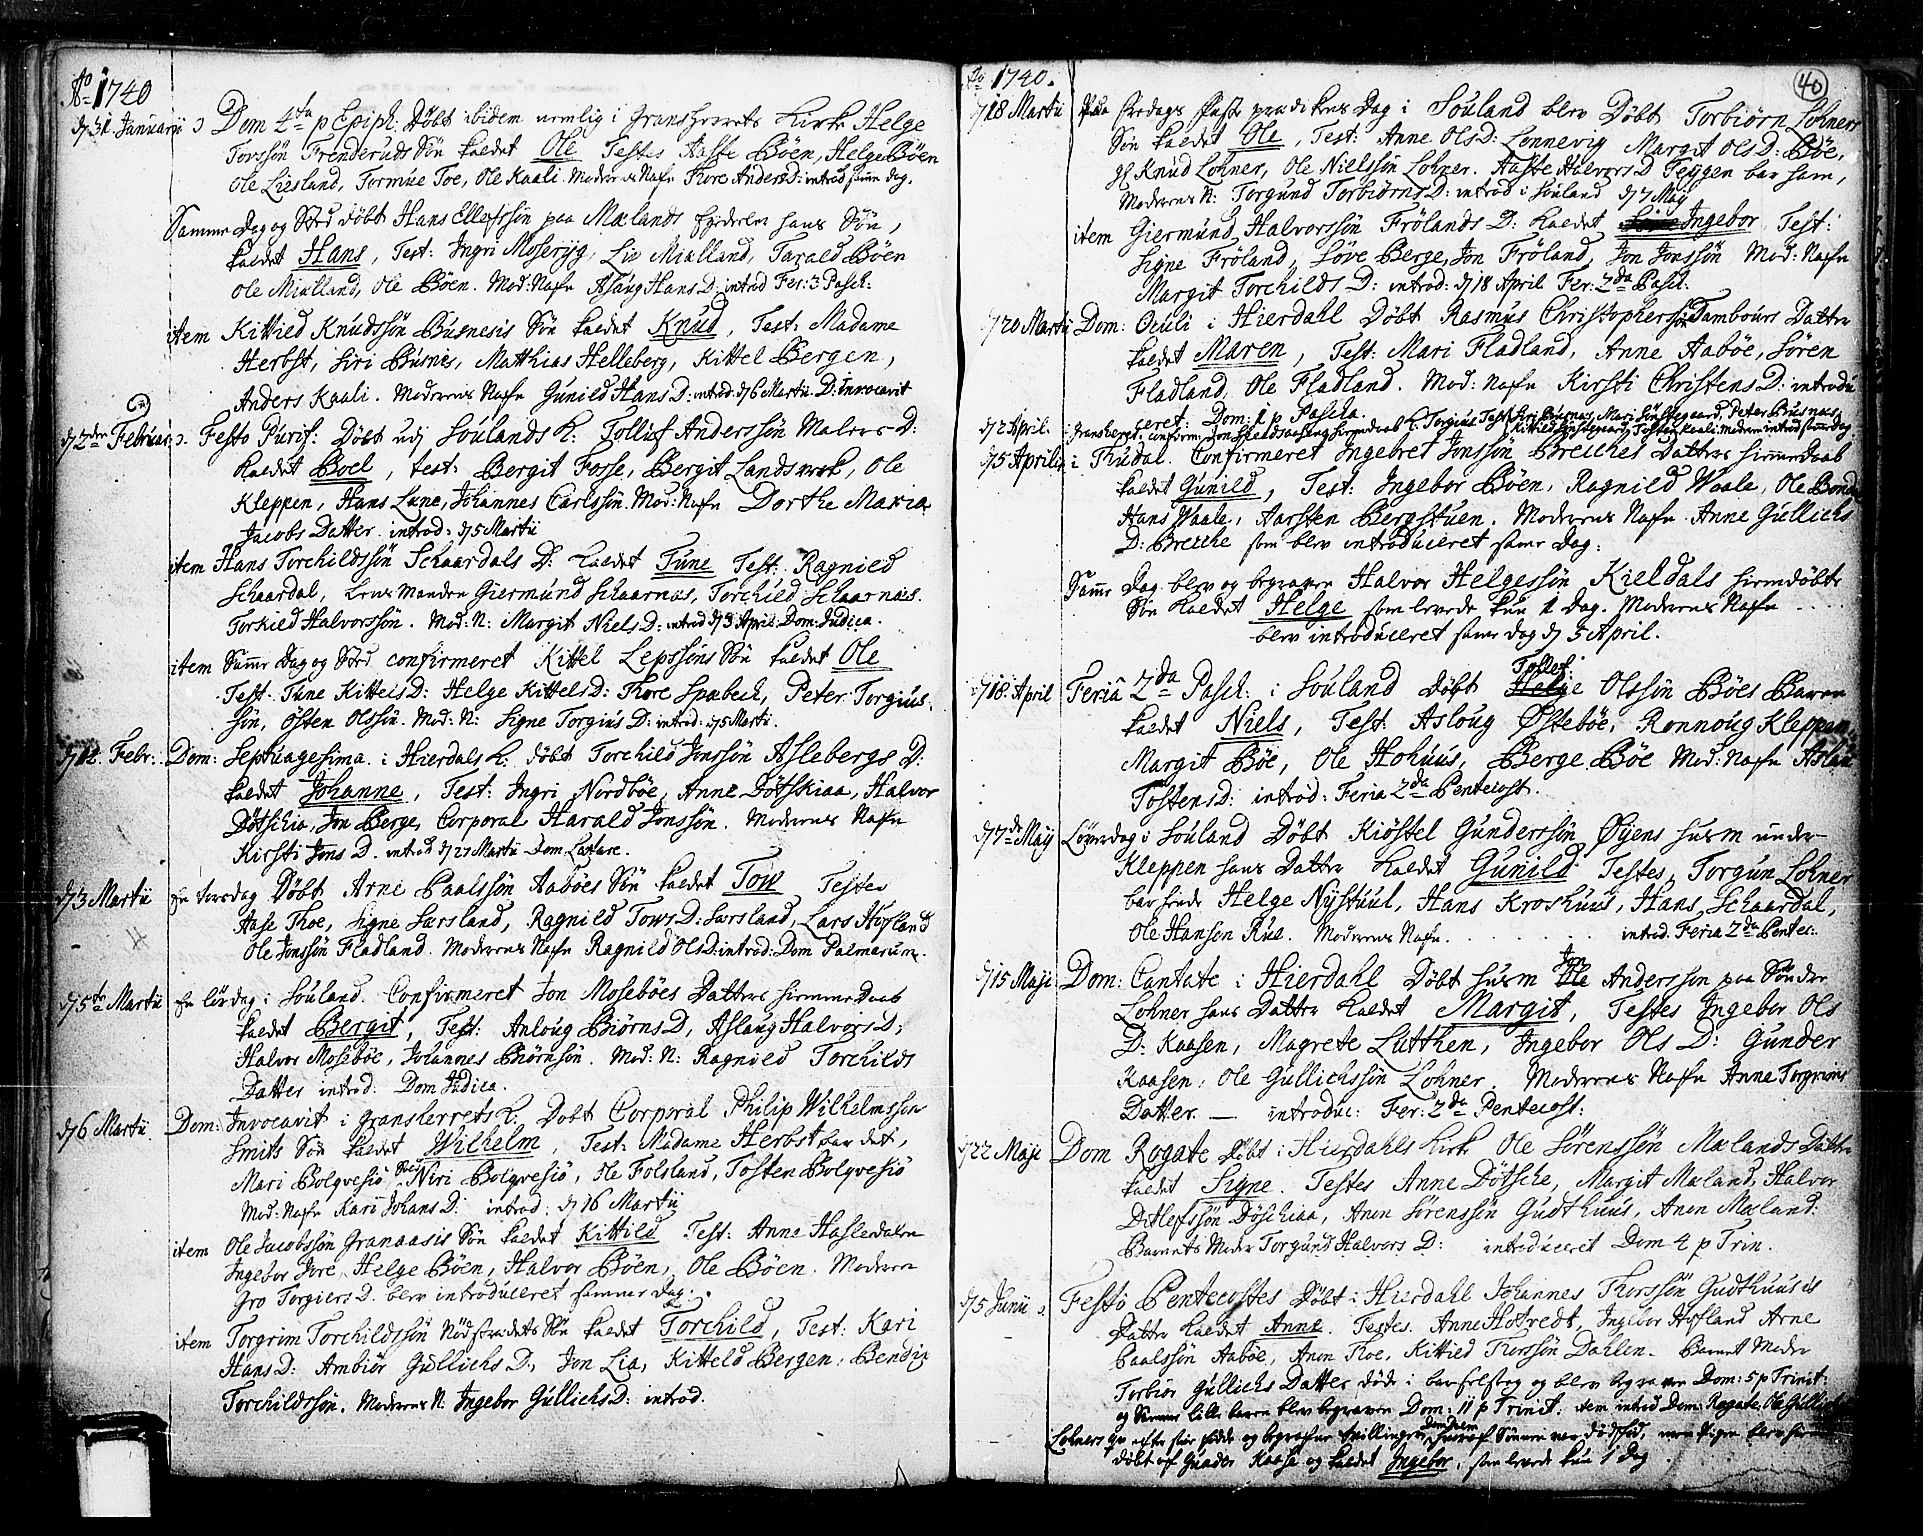 Ao 1740
d 31 Januarii Dom 4ta p Epiph: Döbt ibidem nemlig i Gransherrets Kirke Helge
Tovssön Frenderuds Sön kaldet Ole Testes Aaste Böen, Helge Böen
Ole Liesland, Tormue Toe, Ole Kaali. Moderens Nafn Thore AndersD: introd samme dag.
Samme Dag og Sted döbt Hans Ellefssön paa Mælands hans Sön,
kaldet Hans, Test: Ingri Moseryg, Liv Mialland, Tarald Böen
Ole Mialland, Ole Böen. Mod: Nafn Aslaug HansD: introd Fer: 3 Pasch:
item Kittied Knudssön Busnesis Sön kaldet Knud, Test: Madame
Herbst, Siri Busnes, Matthias Helleberg, Kittel Bergen,
Anders Kaali. Moderens Nafn Gunild HansD: introd: d 6 Martii D: Invocavit
d 2den Februar. Festo Purif: Döbt udj Soulands K: Tolluf Anderssön Malers D:
kaldet Boel, test: Bergit Fosse, Bergit Landsverk, Ole
Kleppen, Hans Lune, Johannes Carlssön. Mod: Nafn Dorthe Maria
Jacobs Datter. introd: d 5 Martii
item Hans Torchildssön Schaardals D: kaldet Tune Test: Ragnild
Schaardal, Lens Manden Giermund Schaarnæs, Torchild Schaarnæs.
Torkied Halvorssön. Mod: N: Margit NielsD: introd d 3 April Dom: Judica.
item Samme Dag og Sted confirmeret Kittel Lepssöns Sön kaldet Ole
Test. Tune KittelsD: Helge KittelsD: Thore Spæbech, Peter Torgius
sön, Östen Olssön. Mod: N: Signe TorgiusD: introd: d 5 Martii.
d 14. Febr: Dom: Septuagesima. i Hierdals K: döbt Torchild Jonssön Aslebergs D:
kaldet Johanne, Test: Ingri Nordböe, Anne Dötskiaa, Halvor
Dötschia, Jon Berge, Corporal Harald Jonssön. Moderens Nafn
Kirsti Jons D. introd d 27 Martii Dom Lætare.
d 3 Martii En torsdag Döbt Arne Paalssön Aaböes Sön kaldet Tow Testes
Aase Thoe, Signe Særsland, Ragnild TowsD: Særsland, Lars Hofland
Ole Jonssön Fladland. Moderens Nafn Ragnild OlsD: introd: Dom Palmarum.
d 5te Martii En lördag i Souland. Confirmeret Jon Moseböes Datters hiemme Daab
kaldet Bergit, Test: Anloug BiörnsD, Aslaug HalvorsD,
Halvor Moseböe, Johannes Biörnsön. Mod: N: Ragnild Torchilds
Datter introd: Dom Judica.
d 6 Martii Dom: Invocavit i Gransherrets K. Döbt Corporal Philip Wilhelmssön
Smits Sön kaldet Wilhelm, Test: Madame Herbst bar det,
Mari Bolqvesiö, Niri Bolqvesiö, Ole Folsland, Tosten Bolqvesiö
Mod: Nafn Kari Johans D: introd: d 16 Martii
item Ole Jacobssön Granaasis Sön kaldet Kittild Test: Anne Hasledalen
Ingebor Jore, Helge Böen, Halvor Böen, Ole Böen. Moderen
Gro Torgiers D. blev introduceret samme dag.
item Torgrim Torchildssön Sön kaldet Torchild, Test: Kari
HansD: Ambiör GullichsD, Jon Lia, Kitteld Bergen, Bendix
Torchildssön. Moderens N. Ingebor GullichsD: introd.
40
Ao 1740.
d 18 Martii Paa Fredags Dag i Souland blev Döbt Torbiörn Lohners
Sön kaldet Ole, Test: Anne OlsD: Lonnevig Margit OlsD: Böe,
Knud Lohner, Ole Nielssön Lohner. Aaste HalvorsD Teygen bar ham,
Moderens N: Torgund TorbiörnsD: introd i Souland d 7 Maij
item Giermund Halvorssön Frölands D: kaldet Ingebor Test:
Signe Fröland, Löve Berge, Jon Fröland, Jon Jonssön Mod: Nafn
Margit Torchilds D: introd: d 18 April Fer: 2da Pasch:
d 20 Martii Dom: Oculi i Hierdahl Döbt Rasmus Christopherssön Tambours Datter
kaldet Maren, Test: Mari Fladland, Anne Aaböe, Sören
Fladland, Ole Fladland. Mod: Nafn Kirsti ChristensD: introdu
ceret: Dom: 1 p Pascha.
d 2 April.
d 5 Aprilis i Thudal. Confirmeret Ingebret Jonssön Brecches Datters hiemmedaab
kaldet Gunild, Test: Ingebor Böen, Ragnild Waale, Ole Bonde
Hans Waale, Aarsten Bergstuen. Moderens Nafn Anne Gullichs
D: Brecche som blev introduceret samme Dag.
Samme Dag blev og begraven Halvor Helgessön Kieldals hiemdöbte
Sön kaldet Helge som levede kun 1 Dag. Moderens Nafn ....
blev introduceret samme dag d 5 April.
d 18 April Feria 2da Pasch: i Souland döbt Tollef Olssön Böes Barn
kaldet Niels, Test: Asloug Östeböe, Ronnoug Kleppen,
Margit Böe, Ole Hohuus, Berge Böe Mod: Nafn Aslau
TostensD: introd: Feria 2da Pentecost.
d 7de Maij Löverdag i Souland Döbt Kiöstel Gunderssön Öyens husm under
Kleppen hans Datter kaldet Gunild Testes, Torgun Lohner
bar hende Helge Nystuul, Hans Kroshuus, Hans Schaardal,
Ole Hanson Rue. Moderens Nafn. .... introd. Feria 2da Pentec:
d 15 Maji Dom: Cantate i Hierdahl Döbt husm Jon Andersson paa Sönder
Lohner hans Datter kaldet Margit, Testes Ingebor Ols
D: Kaasen, Magrete Lutthen, Ingebor Ols D: Gunder
Kaasen, Ole Gullichssön Lohner. Moderens Nafn Anne Torgrims
Datter — introduc: Fer: 2da Pentecost:
d 22 Maji Dom Rogate Döbt i Hierdahls Kirke Ole Sörenssön Mælands Datter
kaldet Signe. Testes Anne Dötsche, Margit Mæland, Halvor
Ditlefssön Döschiaa, Anon Sörenssön Gudthuus, Anon Mæland.
Barnets Moder Torgund Halvors D: introduceret Dom 4 p Trin.
d 5 Junii Festo Pentecostes Döbt i Hierdahl Johannes Thorssön Gudthuusis
Datter kaldet Anne. Testes. Anne Hotvedt, Ingebor Hofland Arne
Paalssön Aaböe, Anon Thoe, Kittied Thorssön Dahlen. Barnet Moder
Torbiör Gullichs Datter döde i barselseng og blev begraven Dom: 5 p Trinit:
og Samme lille baren blev begraven Dom: 11 p Trinit: item introd Dom: Rogate, Ole Gullich
Lohners og begrafne tvillinger, Sönnen var dödföd, men Pigen blev hiem
döbt af Gunder Kaase og kaldet Ingebor, som levede kun 1 Dag.